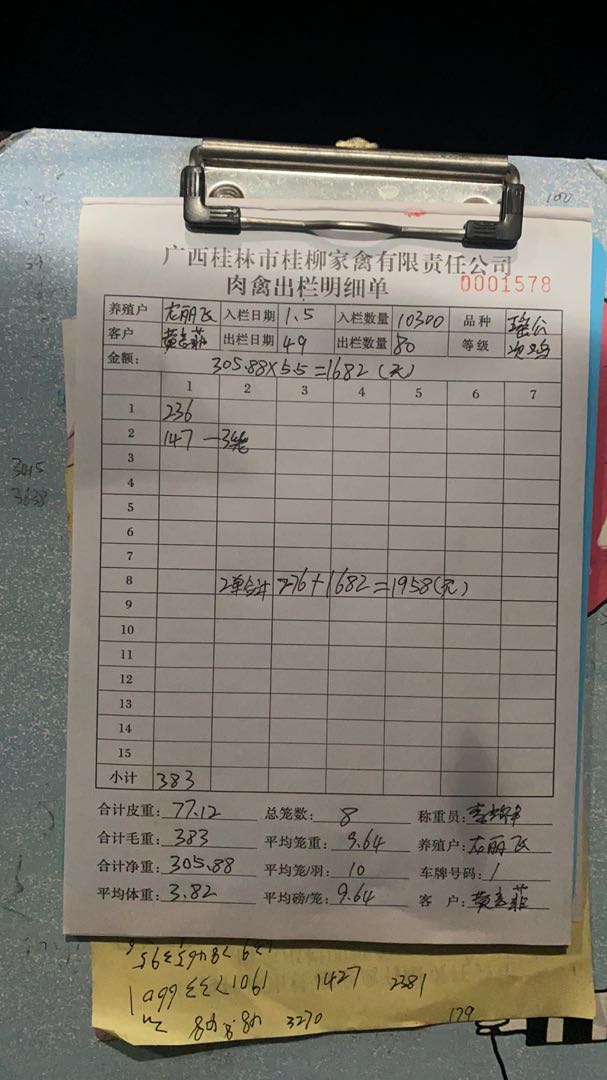 广西桂林市桂柳家禽有限责任公司
肉禽出栏明细单 0001578
养殖户 左丽飞 入栏日期 1.5 入栏数量 10300 品种 瑶公
客户 黄志菲 出栏日期 49 出栏数量 80 等级 次鸡
金额: 305.88×5.5=1682(元)
1 2 3 4 5 6 7
1 236
2 147 —3笼
3
4
5
6
7
8 2单合计 276+1682=1958(元)
9
10
11
12
13
14
15
小计 383
合计皮重: 77.12 总笼数: 8 称重员:
合计毛重: 383 平均笼重: 9.64 养殖户: 左丽飞
合计净重: 305.88 平均笼/羽: 10 车牌号码: 1
平均体重: 3.82 平均磅/笼: 9.64 客 户: 黄志菲
1427 2381
3270 179
100
3415
3638